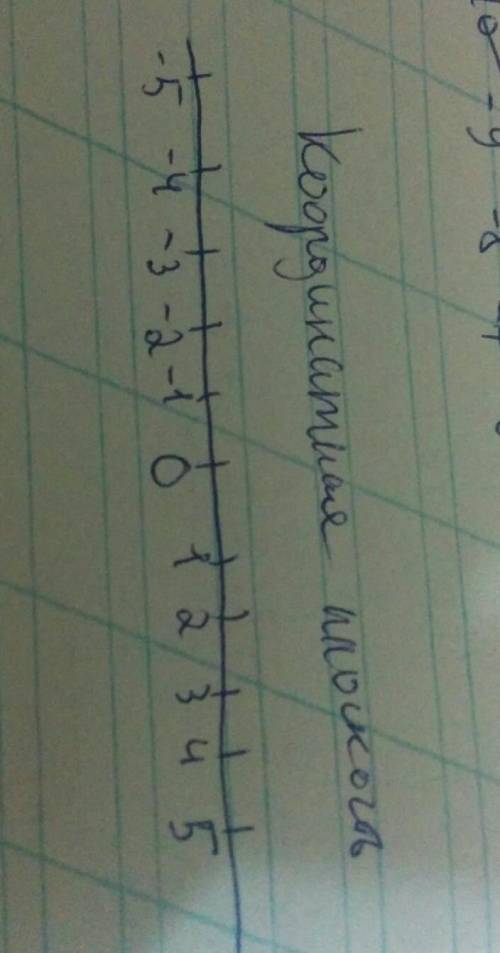 Координатная плоскость
-5 -4 -3 -2 -1 0 1 2 3 4 5